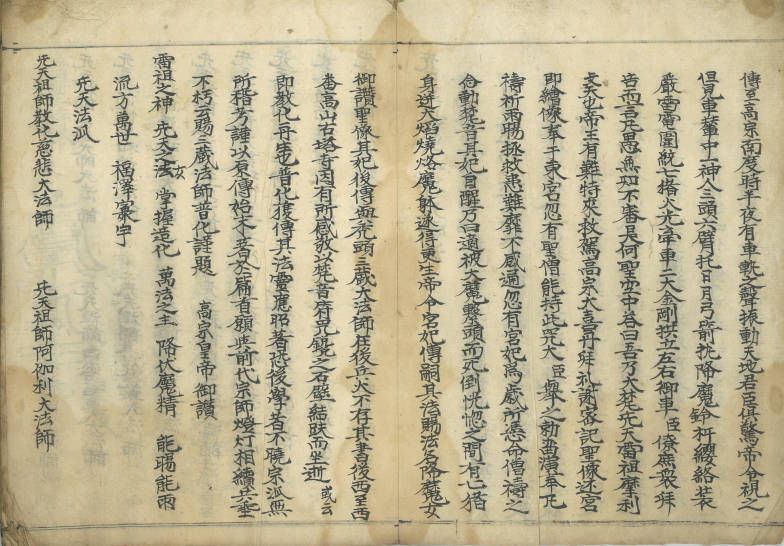 傳至高宗南度時半夜有車輦之聲振動天地君臣俱驚帝令視之
但見車輦中一神人三頭六臂托日月弓箭㧡降魔鈴杵纓絡裝
嚴雷電圍統七猪火光牽車二大金剛拱立左右御車臣僚羅列拜
告而言凡思無知不審是何聖空中答曰吾乃大梵先天雷祖摩利
支天也帝王有難特來救駕高宗大喜再拜𥙊謝密記聖像还宮
即繪像奉于東宮忽有聖僧能持此咒大臣舉之勅留演奉凡
禱祈雨暘拯救患難靡不感通忽有宮妃為歲所憑命僧禱之
念動梵音其妃目醒乃曰適被大魔繫頭而死倒恍惚之間有七猪
身迸大焰燒烙魔躰遂得更生帝令宮妃傳嗣其法賜法名降魔女
御讚聖像其妃後傳與禿頭三藏大法師在後兵火不存其書後西至西
番高山石塔寺因有所感教以梵音府咒鏡之石壁結趺而坐逝 或云
即教化再生也普化獲傳其法靈應昭著恐後學者不曉宗派無
所指考謹以原傳始末著於篇首願此前代宗師燈灯相續共垂
不朽云賜三藏法師普化謹題 高宗皇帝御讚
雷祖之神 先天之法女 掌握造化 萬法之主 降伏魔精 能暘能雨
流方萬世 福澤寰宇
先天法派
先天祖師教化慈悲大法師 先天祖師阿伽利大法師